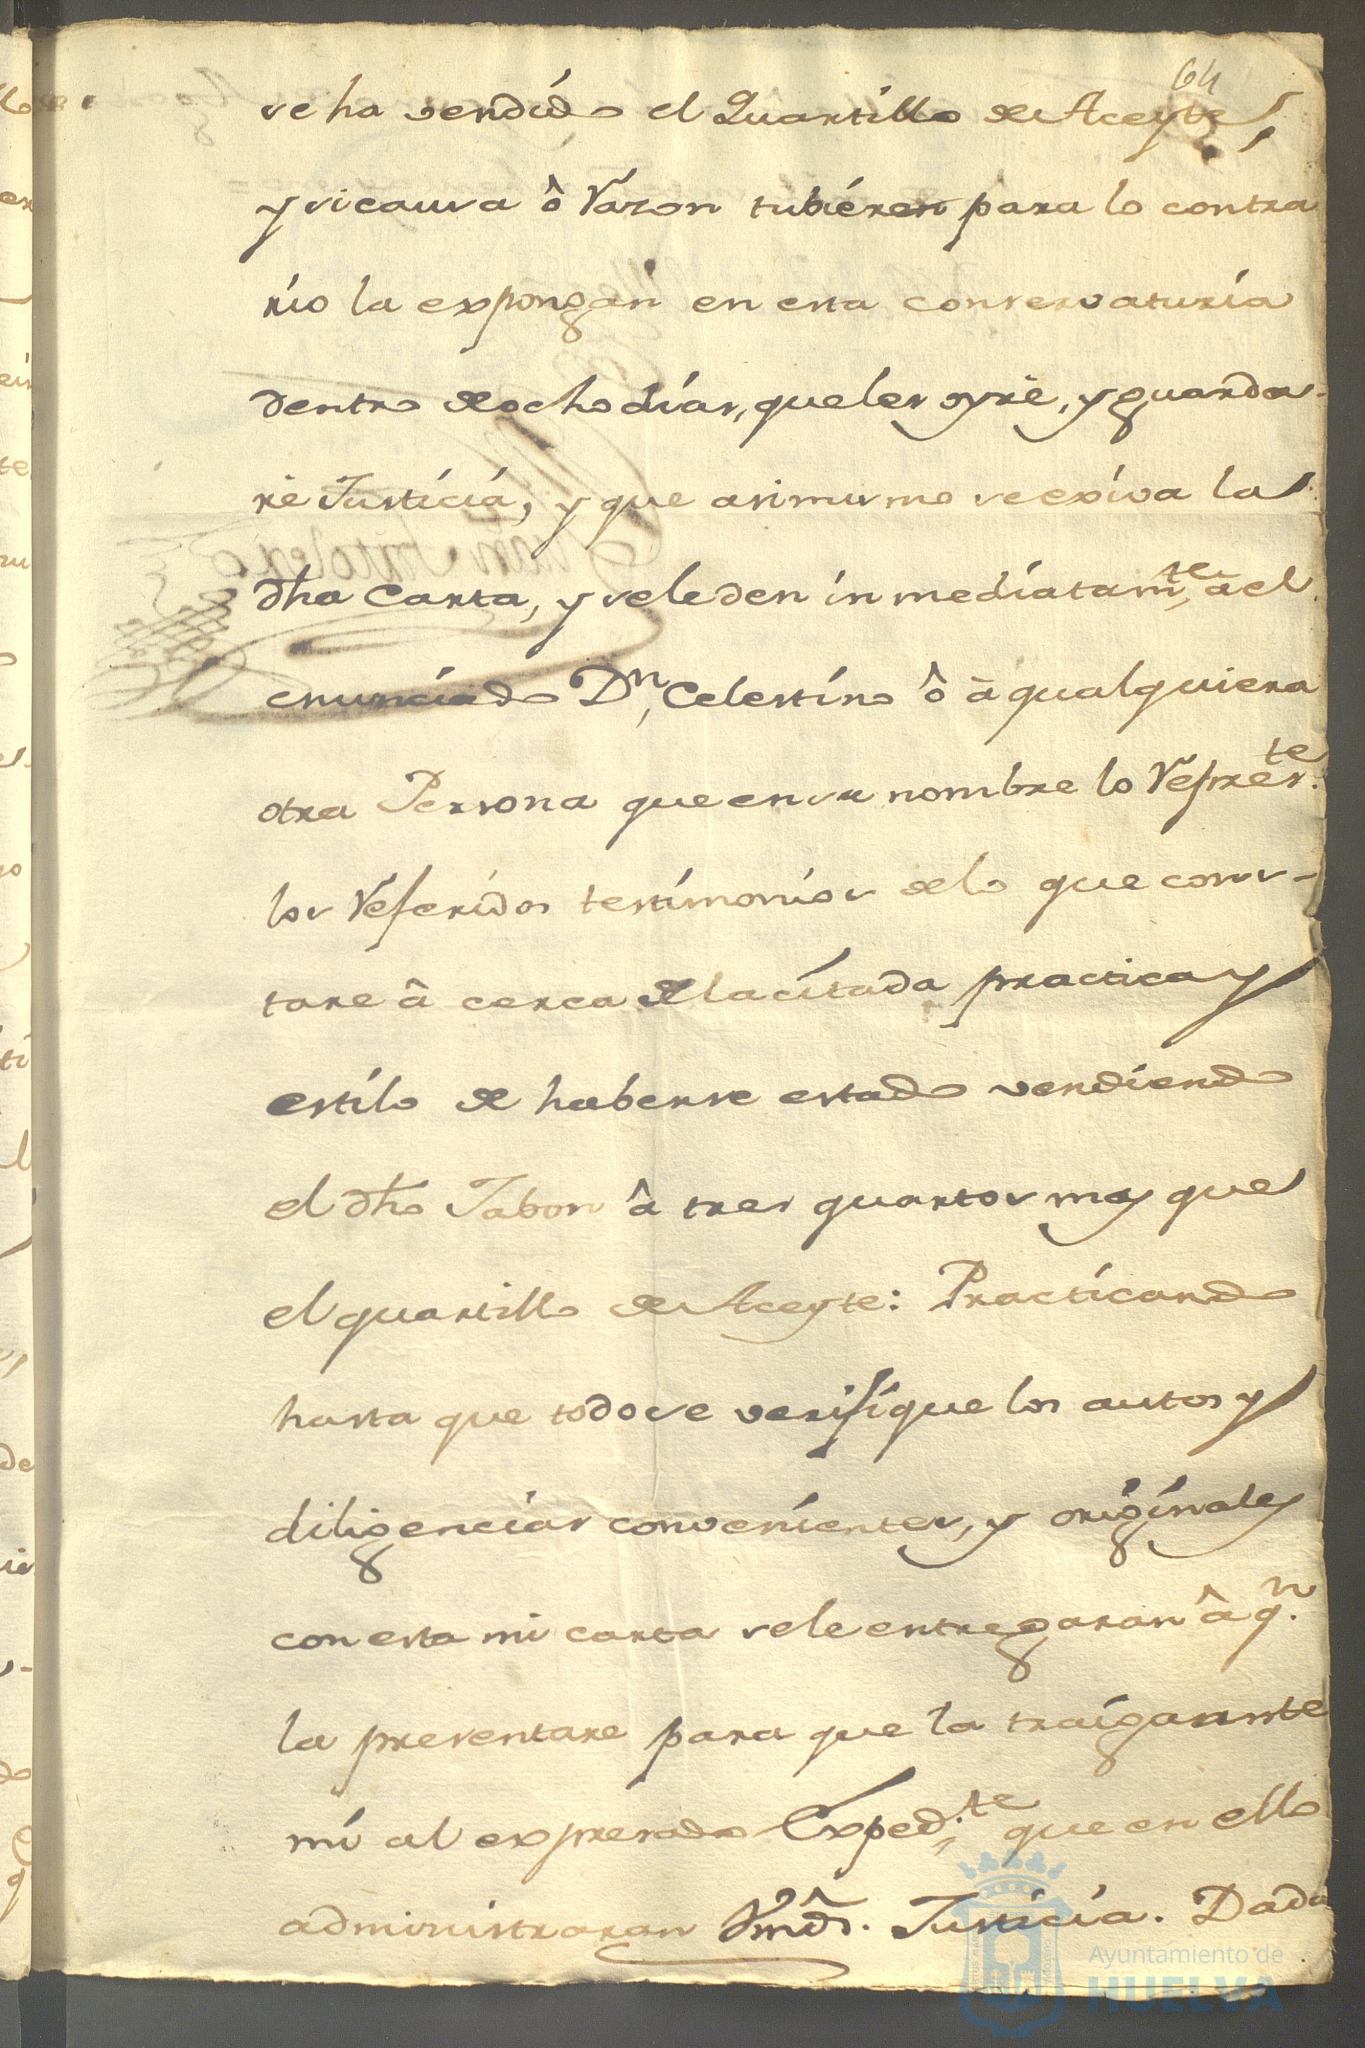 64
se ha vendido el Quartillo de Aceyte,
y si causa ô Razon tubiéren para lo contra
rio la expongan en esta conservaturia
dentro de ocho dias, que les oyré, y guarda-
ré Justicia, y que asimismo se exiva la
dha Carta, y se le den inmediatamte, à el
enunciado Dn, Celestino ô à qualquiera
otra Persona que en su nombre lo Represte.
los Referidos testimonios de lo que cons-
tare â cerca de la citada practica y
estilo de haberse estado vendiendo
el dho Jabon â tres quartos mas que
el quartillo de Aceyte: Practicando
hasta que todo se verifique los autos y
diligencias convenientes, y originales
con esta mi carta se le entregaran â qn.
la presentare para que la traiga ante
mi al expresado Expedte, que en ello
administraran Vmds. Justicia. Dada
Ayuntamiento de
HUELVA